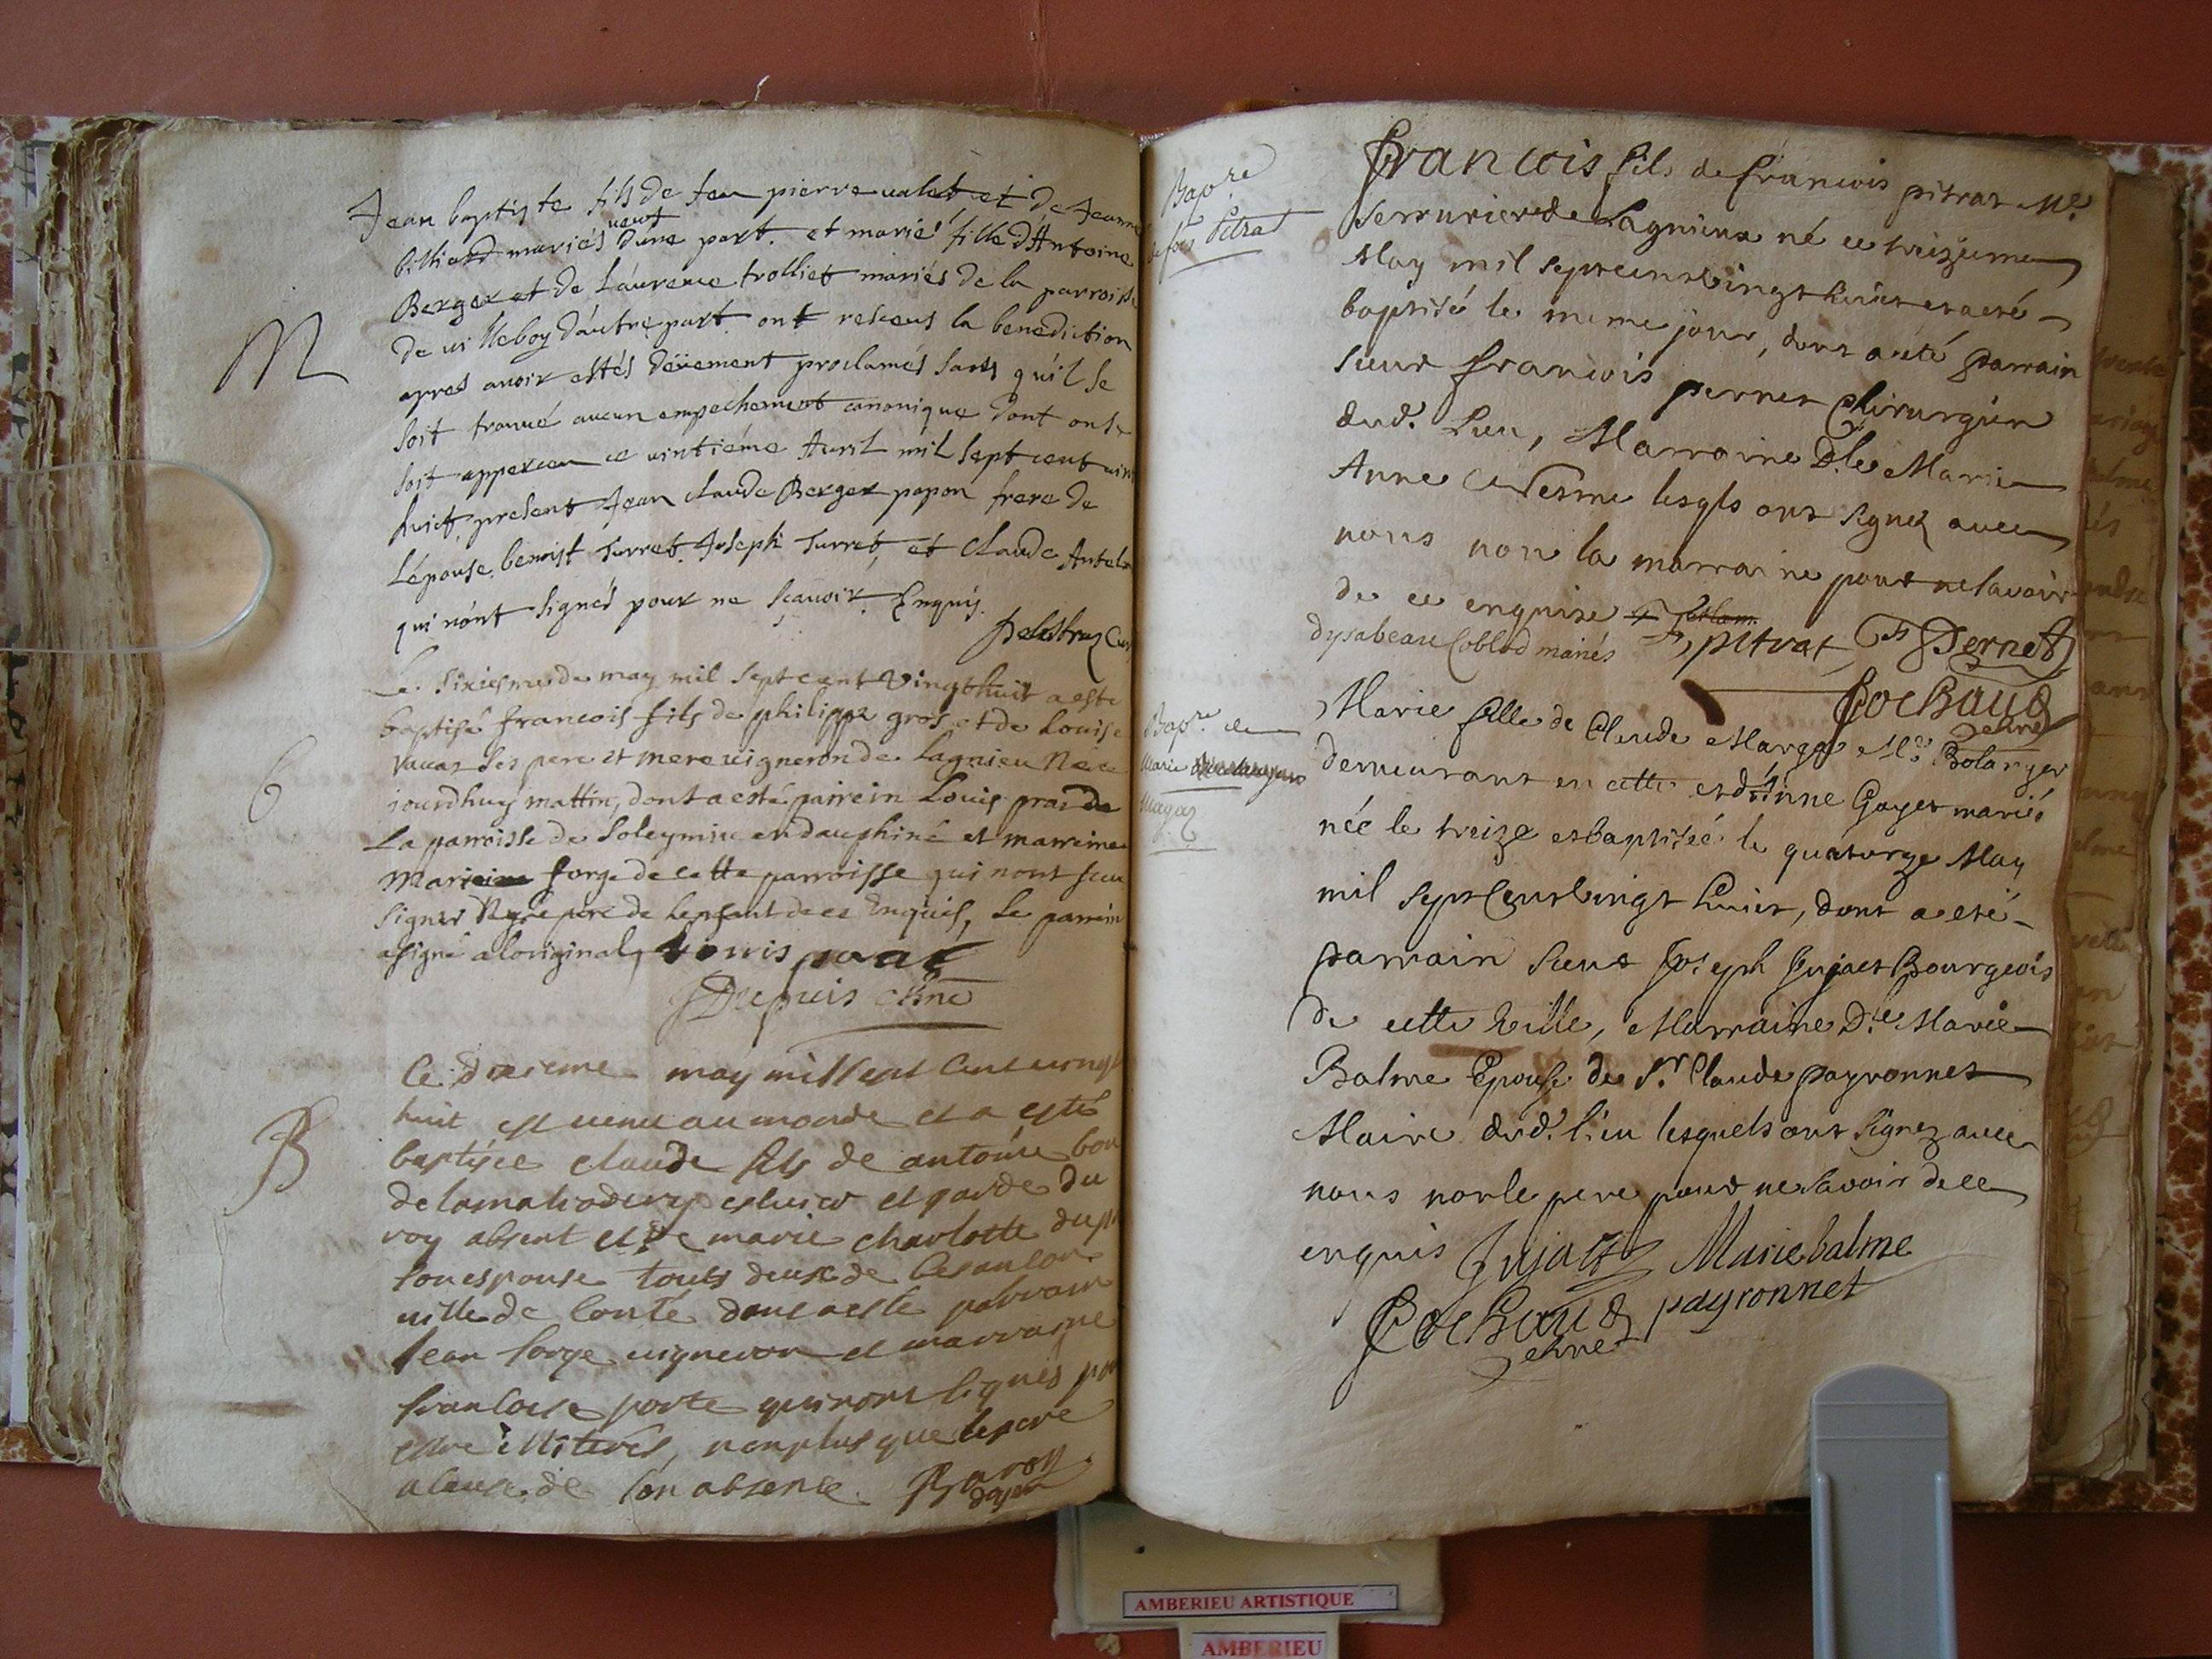 M
Jean baptiste fils de feu pierre valet et de Jeanne
billiard mariés veuf d'une part. et marié fille d'Antoine
Berger et de Laurence trolliet mariés de la parroisse
de villeboy d'autre part. ont receus la benediction
apres avoir estés deüement proclamés sans qu'il se
soit trouvé aucun empechement canonique dont on se
soit apperceu ce vintiéme Avril mil sept cent vint
huit, present Jean claude Berger papon frere de
L'épouse, benoist Turret, Joseph Turret, et Claude
qui n'ont signés pour ne sçavoir. Enquis.
6
Le sixiesme de may mil sept cent vingt huit a esté
baptisé francois fils de philippe gros et de Louise
ses pere et mere vigneron de Lagnieu Ne ce
jourdhuy mattin, dont a esté parrein Louis prat de
La parroisse de Soleymiu en dauphiné et marreine
Marie forge de cette parroisse qui nont sceu
signer Ny le pere de lenfant de ce Enquis, Le parrein
a signé a loriginal, Louis prat
Dupuis chne
B
Ce dixieme may mil sept cent vingt
huit est venu au monde et a esté
baptisée claude fils de antoine
et garde du
roy absent et de marie charlotte
son espouse touts deux de besancon
ville de Conté dont a esté parrain
Jean forge vigneron et marraine
francoise porte qui n'ont signés pour
estre illiterés, non plus que le pere
a cause de son absence. Baron
doyen
Bapre
de fois Pitrat
Francois fils de francois pitrat Me
Serrurier de Lagnieux né ce treizieme
May mil sept cent vingt huit et a eté
baptisé le meme jour, dont a eté parrain
sieur francois pernet Chirurgien
dud. Lieu, Marraine Dlle Marie
Anne lesqls ont signez avec
nous non la marraine pour ne savoir
de ce enquise
dysabeau Coblod mariés F, pitrat Fs Pernet
Cochaud
chne
Bapre de
Marie
Magat
Marie fille de Claude Margat Me Bolanger
demeurant en cette et d'Anne Goyet mariés
née le treize et baptisée le quatorze May
mil sept Cent vingt huit, dont a eté
parrain sieur Joseph Jujat Bourgeois
de cette ville, Marraine Dlle Marie
Balme Epouse de Sr. Claude payronnet
Maire dud. lieu lesquels ont signez avec
nous non le pere pour ne savoir de ce
enquis Jujat Marie balme
Cochaud payronnet
chne
AMBERIEU ARTISTIQUE
AMBERIEU